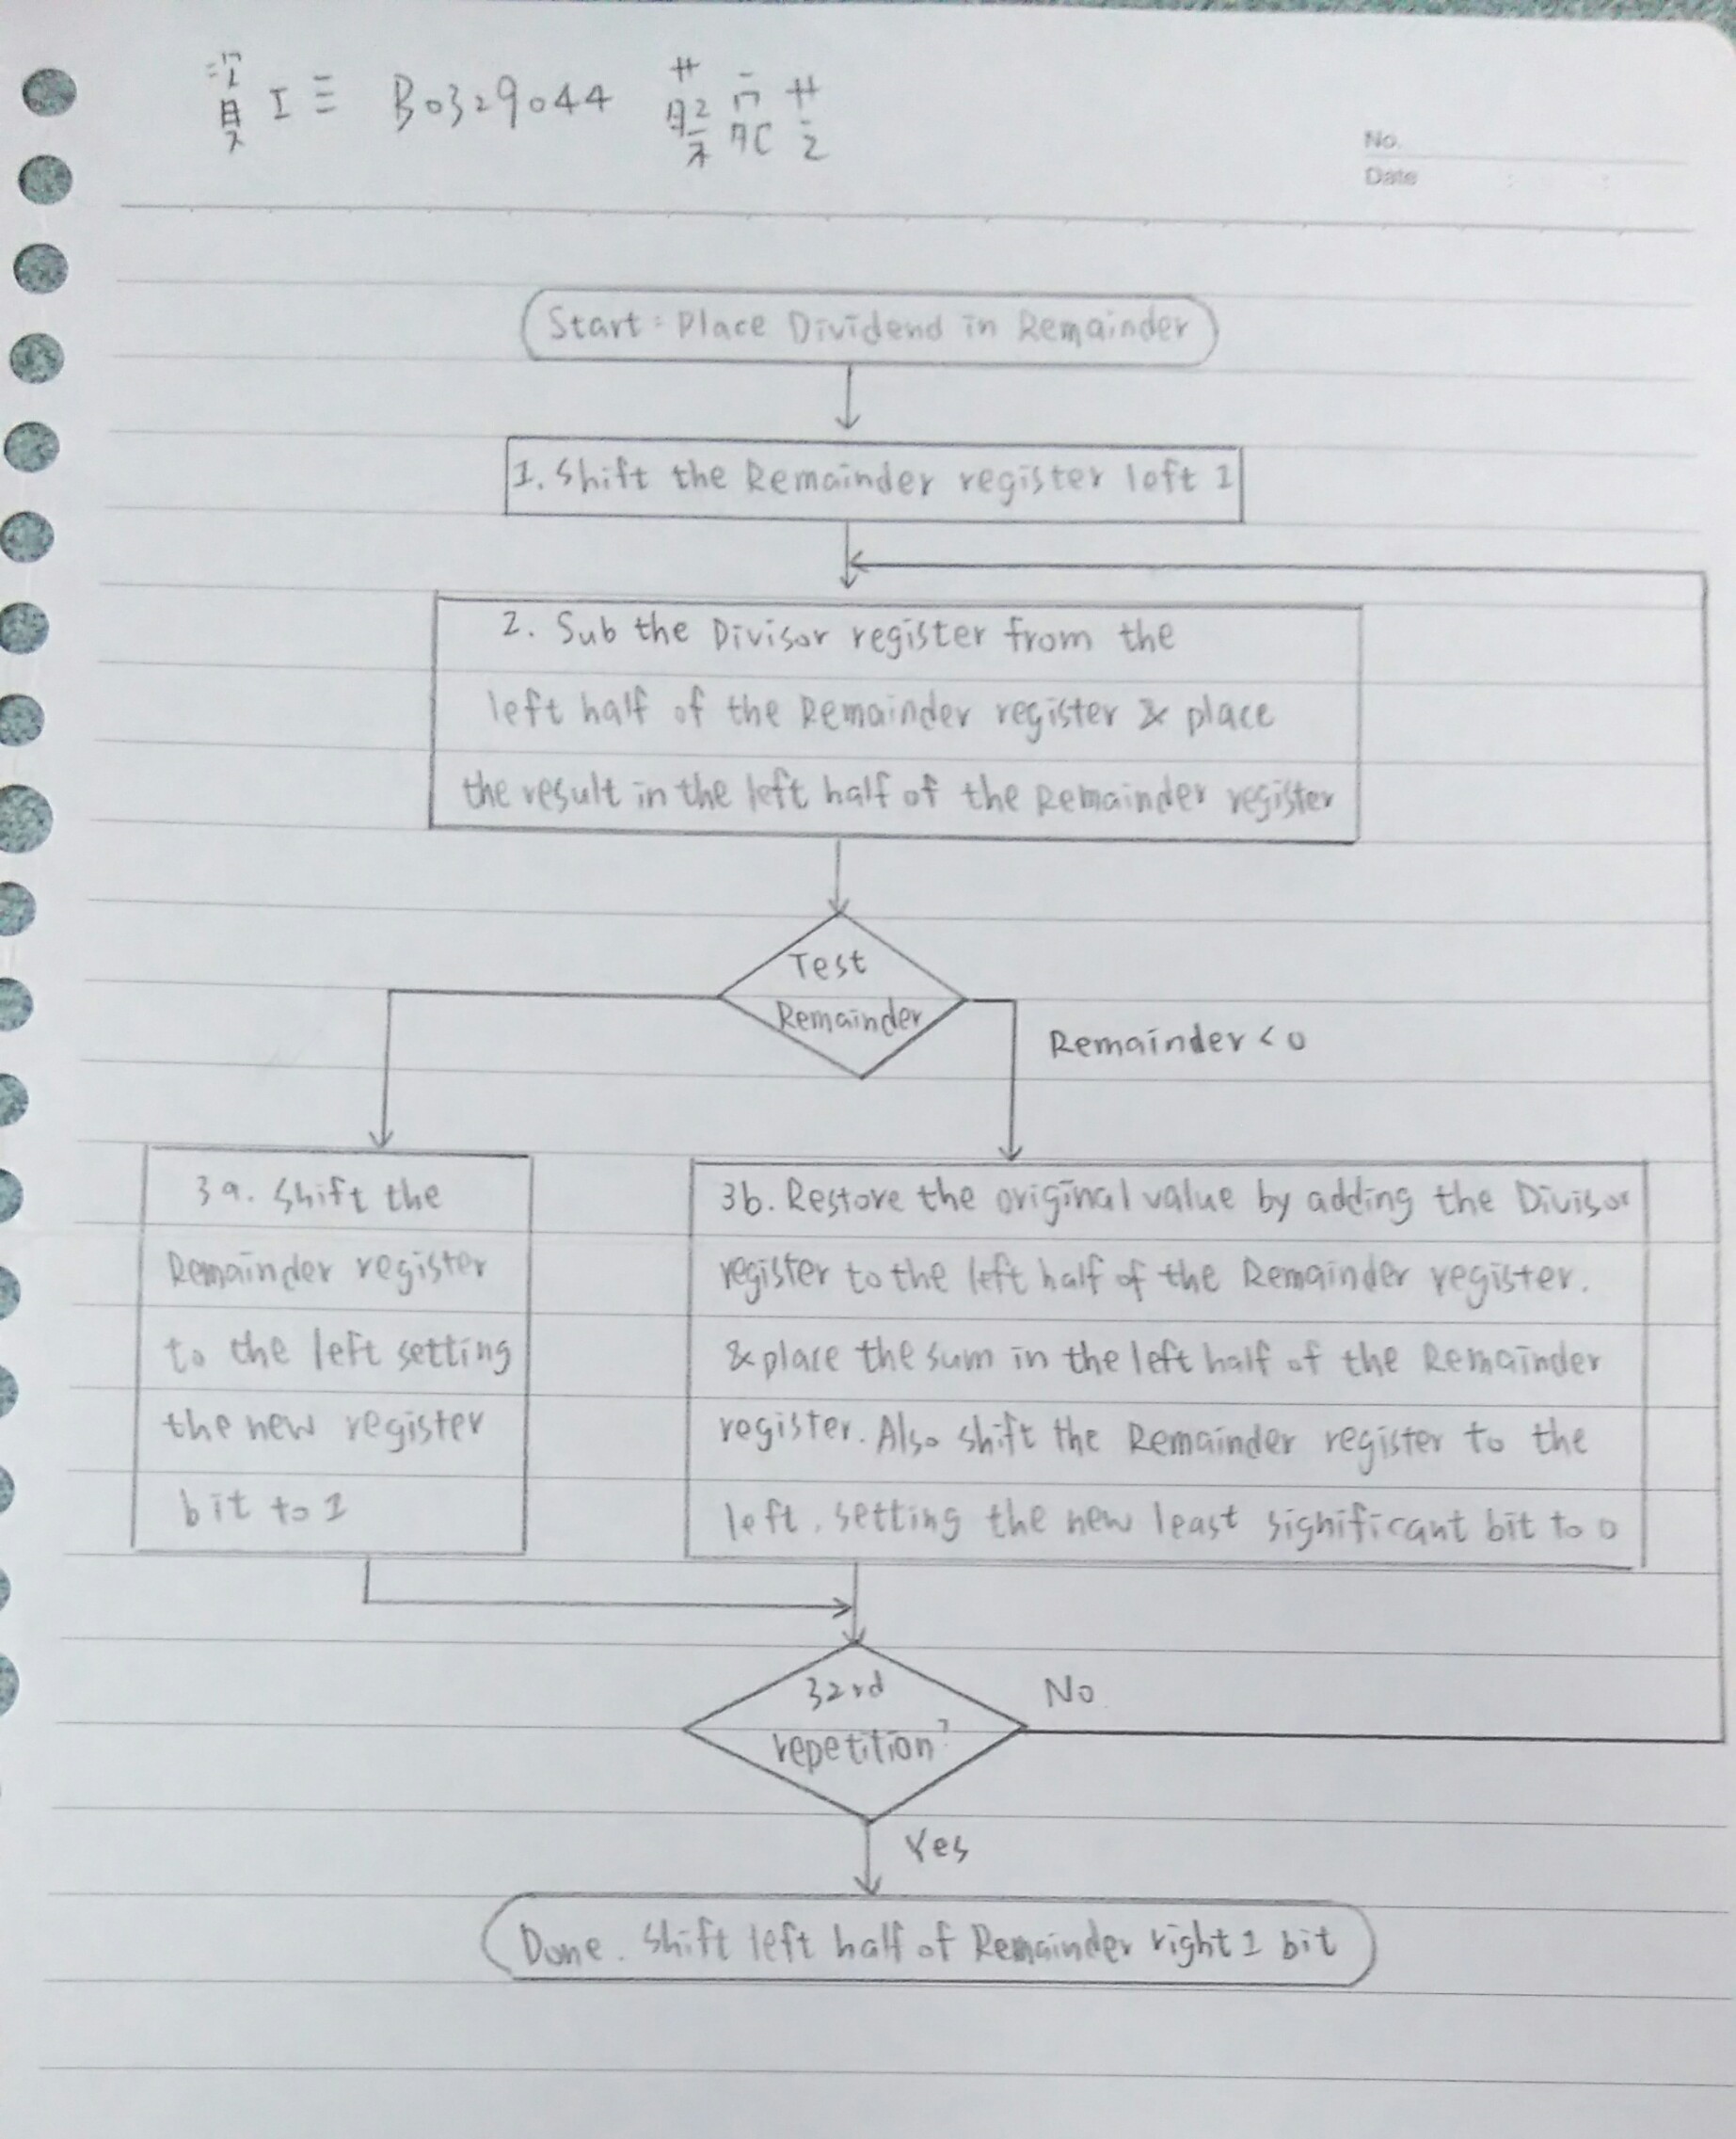 資工三 B0329044
No.
Date
Start: Place Dividend in Remainder
1. Shift the Remainder register left 1
2. Sub the Divisor register from the
left half of the Remainder register & place
the result in the left half of the Remainder register
Test
Remainder
Remainder < 0
3a. Shift the
Remainder register
to the left setting
the new register
bit to 1
3b. Restore the original value by adding the Divisor
register to the left half of the Remainder register.
& place the sum in the left half of the Remainder
register. Also shift the Remainder register to the
left, setting the new least significant bit to 0
32rd
repetition?
No
Yes
Done. Shift left half of Remainder right 1 bit